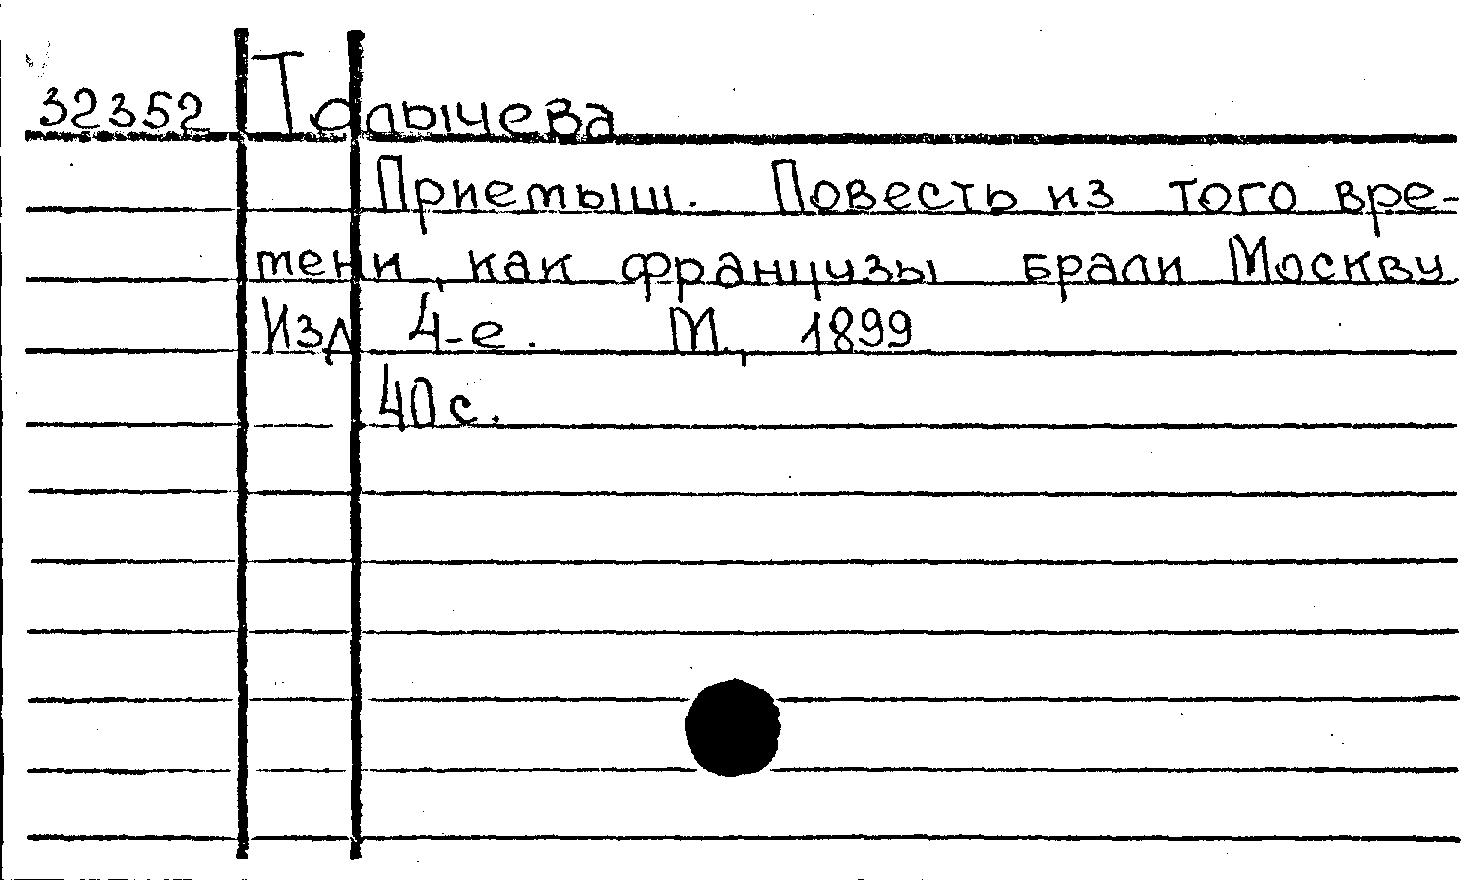 32352 Толычева
Приемыш. Повесть из того вре-
мени, как французы брали Москву.
Изд. 4-е. М., 1899
40 с.